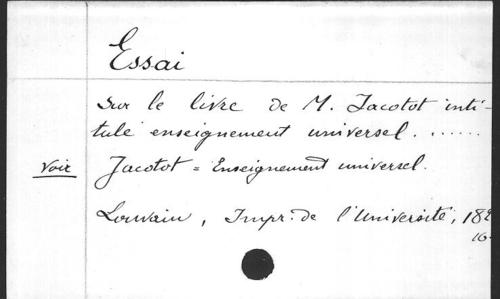 Essai
sur le livre de M. Jacotot inti-
tulé enseignement universel. ......
Voir Jacotot = Enseignement universel.
Louvain, Impr. de l'Université, 182
16-